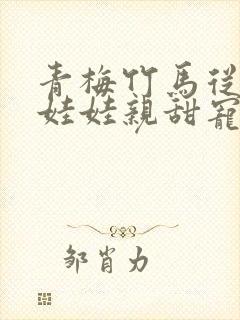 青梅竹馬從
娃娃親甜寵
鄒肖力